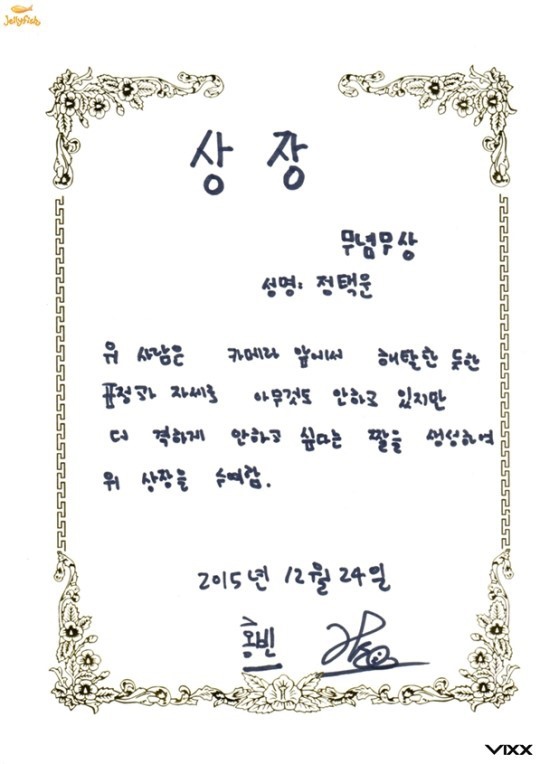 Jellyfish
상 장
무념무상
성명: 정택운
위 사람은 카메라 앞에서 해탈한 듯한
표정과 자세로 아무것도 안하고 있지만
더 격하게 안하고 싶다는 짤을 생성하여
위 상장을 수여함.
2015년 12월 24일
홍빈
VIXX